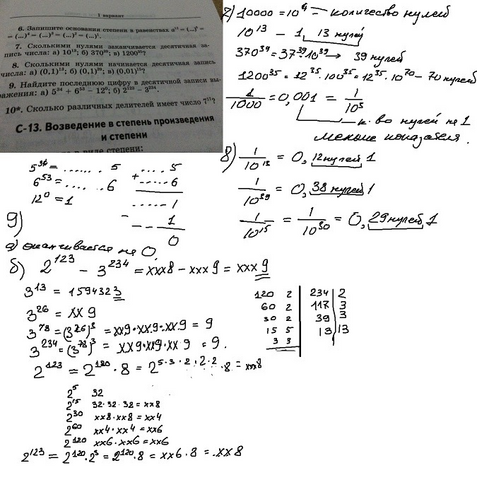 1 вариант
6. Запишите основания степени в равенствах
7. Сколькими нулями заканчивается десятичная за-
пись числа: а) 10¹³; б) 370³⁹; в) 1200³⁵?
8. Сколькими нулями начинается десятичная запись
числа: а) (0,1)¹³; б) (0,1)³⁹; в) (0,01)¹⁵?
9. Найдите последнюю цифру в десятичной записи вы-
ражения: а) 5³⁴ + 6⁵³ – 12⁰; б) 2¹²³ – 3²³⁴.
10*. Сколько различных делителей имеет число
С-13. Возведение в степень произведения
и степени
7) 10000 = 10⁴ = количество нулей
10¹³ – 1, 13 нулей
370³⁹ = 37³⁹·10³⁹ → 39 нулей
1200³⁵ = 12³⁵·100³⁵ = 12³⁵·10⁷⁰ – 70 нулей
1/1000 = 0,001 = 1/10³
к.во нулей на 1
меньше показателя.
8) 1/10¹³ = 0, 12 нулей 1
1/10³⁹ = 0, 38 нулей 1
1/10¹⁵ = 1/10³⁰ = 0, 29 нулей 1
5³⁴ = ...... 5
6⁵³ = ...... 6
12⁰ = 1
+ .... 5
..... 6
..... 1
– 1
0
9)
а) оканчивается на 0.
б) 2¹²³ – 3²³⁴ = xxx8 – xxx9 = xxx9
3¹³ = 1594323
3²⁶ = xx9
3⁷⁸ = (3²⁶)³ = xx9·xx9·xx9 = 9
3²³⁴ = (3⁷⁸)³ = xx9·xx9·xx9 = 9.
2¹²³ = 2¹²⁰·8 = 2⁵·³·²·²·²·8 = xx8
120 2
60 2
30 2
15 5
3 3
234 2
117 3
39 3
13 13
2⁵ 32
2¹⁵ 32·32·32 = xx8
2³⁰ xx8·xx8 = xx4
2⁶⁰ xx4·xx4 = xx6
2¹²⁰ xx6·xx6 = xx6
2¹²³ = 2¹²⁰·2³ = 2¹²⁰·8 = xx6·8 = .xx8